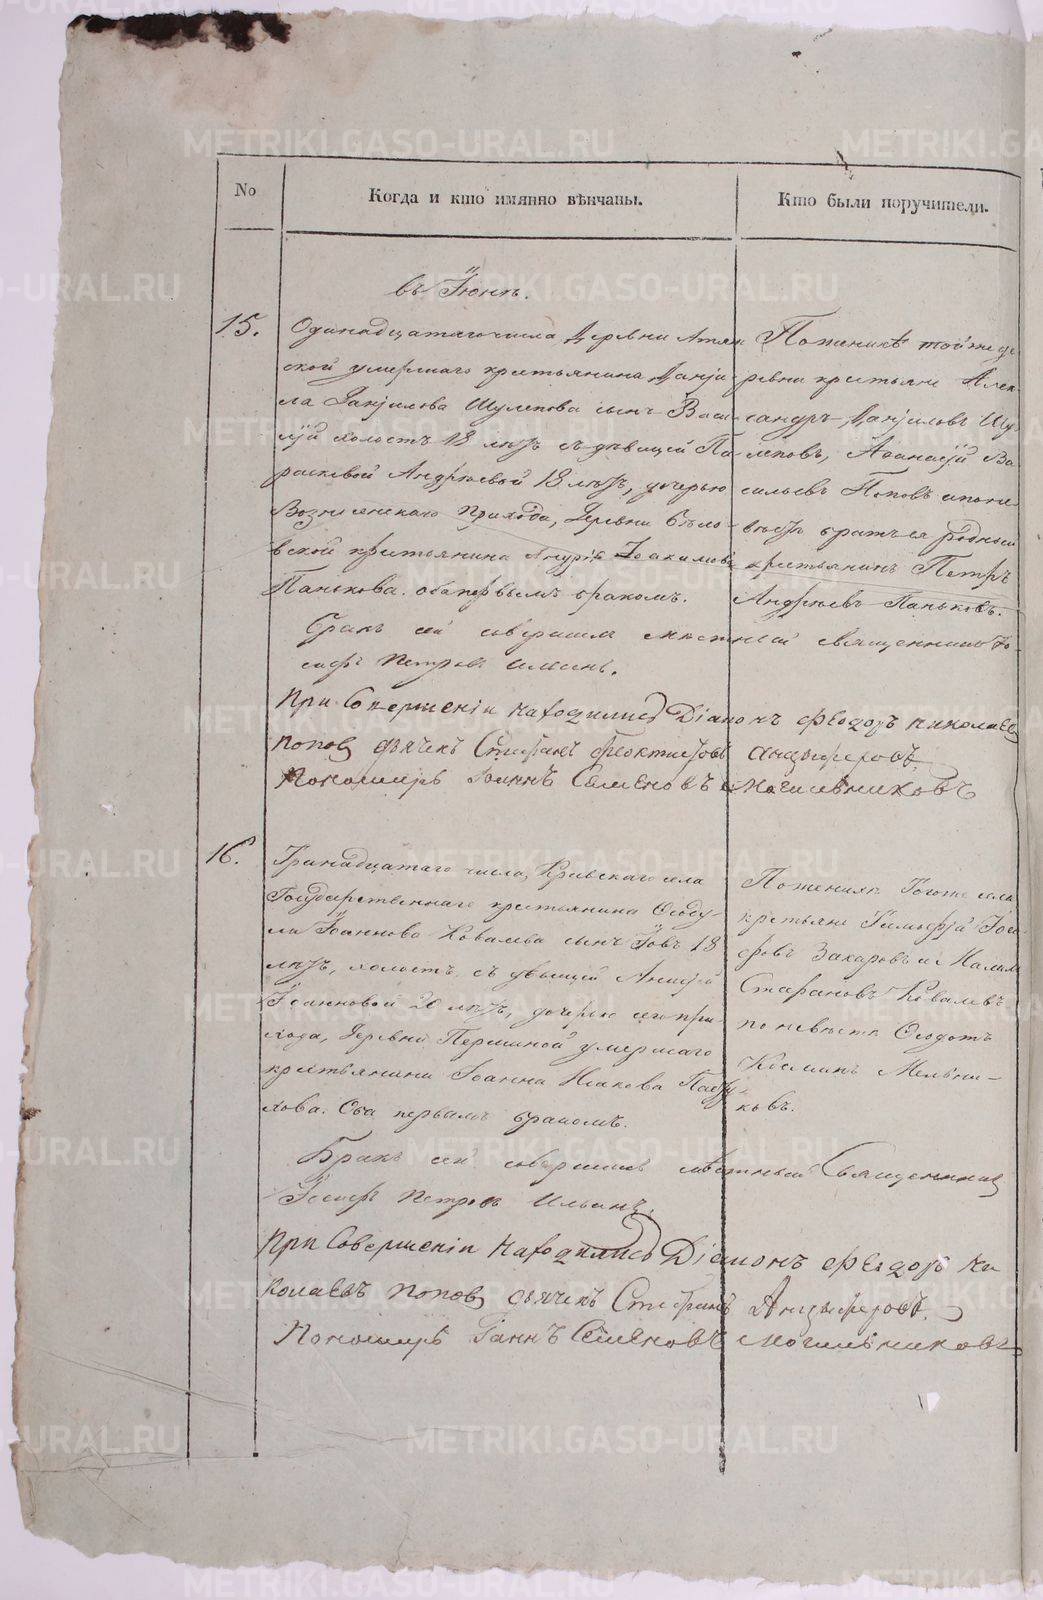 No
Когда и кто имянно вѣнчаны.
Кто были поручители.
въ Іюнѣ.
15.
Одинадцатаго числа Деревни
ской умершаго крестьянина Данiи
ла Данiилова Шулепова сынъ Васи
лiй холостъ 18 лѣтъ съ дѣвицей Па
раскевой Андрѣевой 18 лѣтъ, дочерью
Вознесенскаго прихода, Деревни Бѣло
вской крестьянина Андрѣя Iоакимова
Панькова. оба первымъ бракомъ.
По женихѣ той же де
ревни крестьяне Алек
сандръ Данiиловъ Шу
леповъ, Аѳанасiй Ва
сильевъ Поповъ а по не
вѣстѣ братъ ея родный
крестьянинъ Петръ
Андрѣевъ Паньковъ.
Бракъ сей совершилъ мѣстный священникъ Iо
сифъ Петровъ Ильинъ.
При Совершенiи находились Дiаконъ Ѳеодоръ Николаевъ
Поповъ дьячекъ Стефанъ Феоктистовъ Анцыферовъ
Пономарь Iоаннъ Семеновъ Могильниковъ
16.
Тринадцатаго числа, Кривскаго села
Государственнаго крестьянина Ѳеоду
ла Iоаннова Ковалева сынъ Iовъ 18
лѣтъ, холостъ, съ дѣвицей Анисiей
Iоанновой 20 лѣтъ, дочерью сего при
хода, Деревни Першиной умершаго
крестьянина Iоанна Исакова
хова. Оба первымъ бракомъ.
По женихѣ тогоже села
крестьяне Тимофей Iоси
фовъ Захаровъ и
Стефановъ Ковалевъ
по невѣстѣ Ѳеодотъ
Козминъ Мельни-
ковъ.
Бракъ сей совершилъ мѣстный Священникъ
Iосифъ Петровъ Ильинъ.
При Совершенiи находились Дiаконъ Ѳеодоръ Ни
колаевъ Поповъ дьячекъ Стефанъ Анцыферовъ
Пономарь Iоаннъ Семеновъ Могильниковъ
METRIKI.GASO-URAL.RU